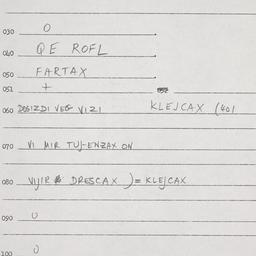 030 O
040 QE ROFL
050 FARTAX
051 +
060 DOSIZDI VEG VIZI KLEJCAX (401
070 VI MIR TUJ-ENZAX ON
080 VIJIR DRESCAX )= KLEJCAX
090 U
100 U